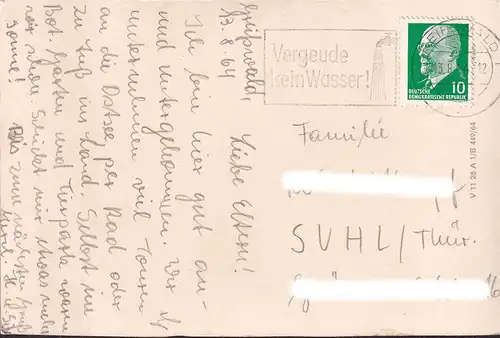 Greifswald,
13. 8. 64
Liebe Eltern!
Ich bin hier gut an-
und untergekommen. Wir
unternehmen viel Touren
an die Ostsee per Rad oder
zu Fuß ins Land. Selbst im
Bot. Garten und Tierpark waren
wir schon. Schickt mir etwas mehr
Sonne!
Bis zum nächsten
Vergeude
kein Wasser!
12
10
DEUTSCHE
DEMOKRATISCHE REPUBLIK
Familie
SUHL/Thür.
16
V 11 28 A 1/B 449/64